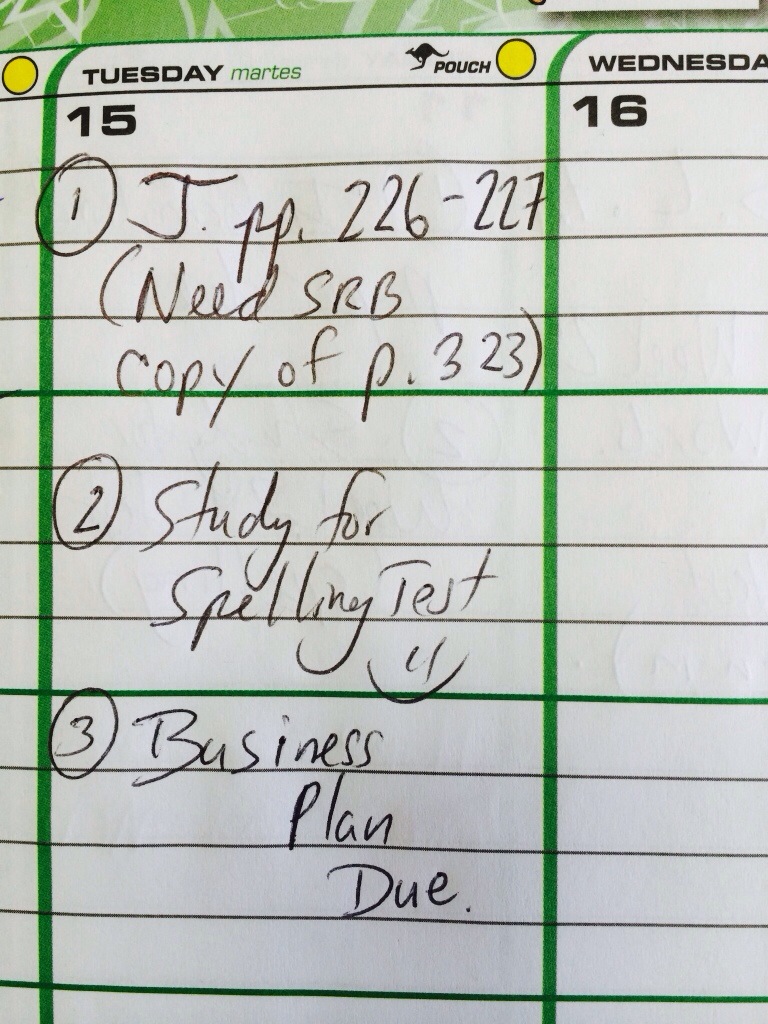 TUESDAY martes POUCH
WEDNESDA
15
16
1 J. pp. 226-227
(Need SRB
copy of p. 323)
2 Study for
Spelling Test
3 Business
Plan
Due.